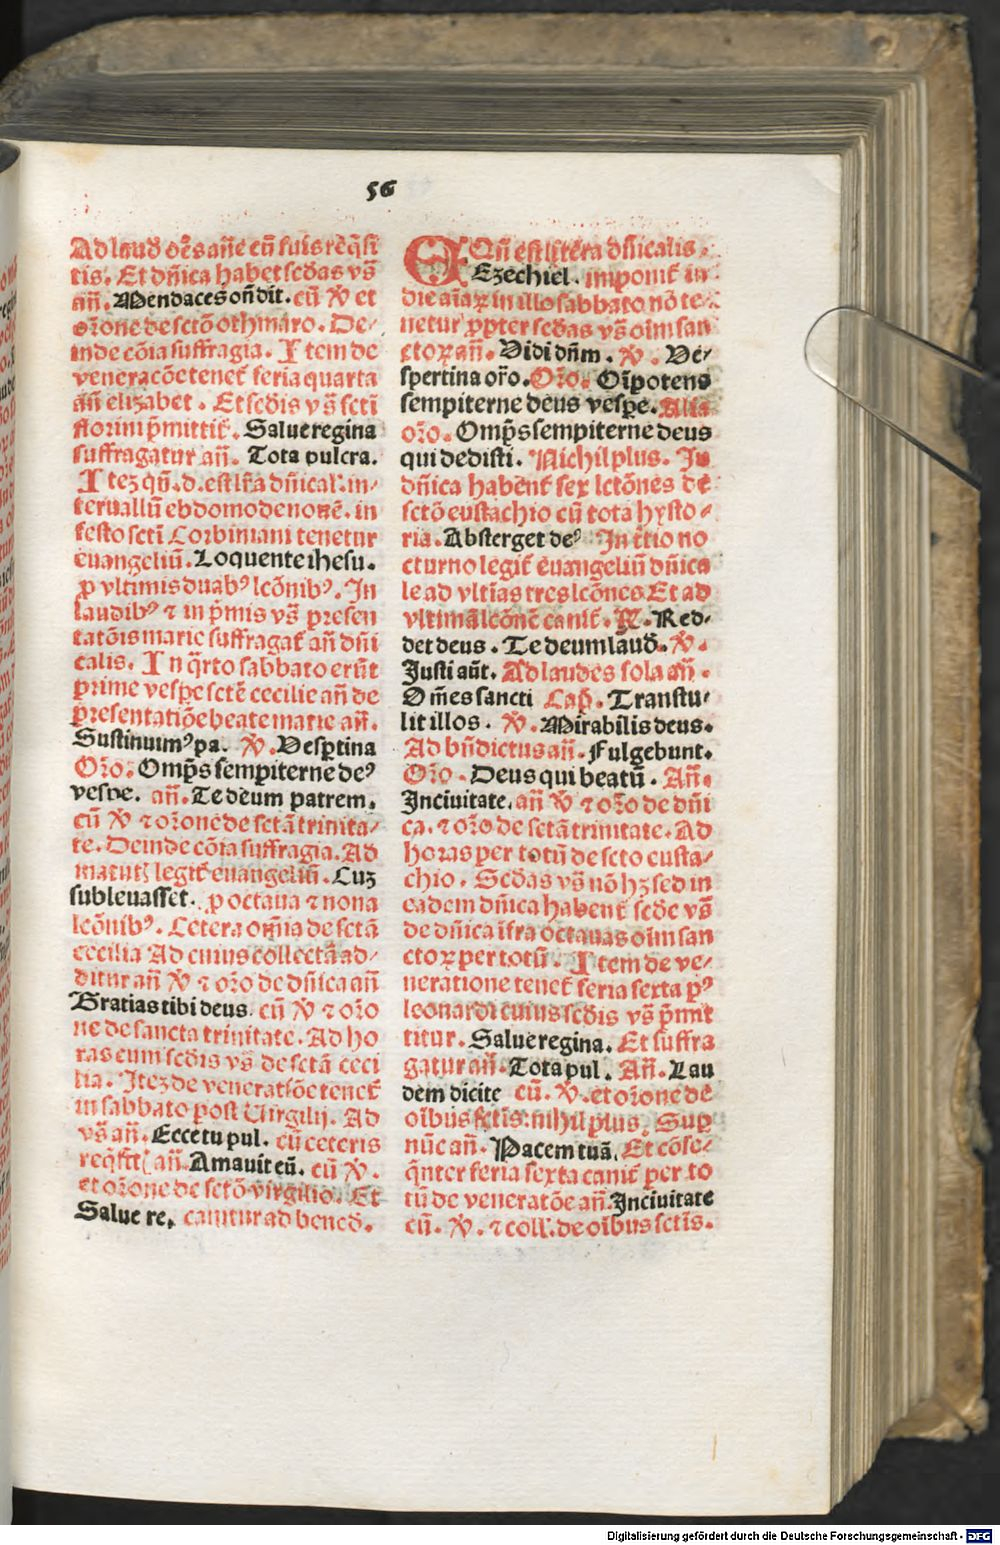 56
Ad laud oēs añe cū suis reqͥsi
tis. Et dñica habet scdas vs̄
añ. Mendaces oñdit. cū ℣ et
oꝛone de sctō othmaro. De⸗
inde cōia suffragia. Item de
veneracōe tenet̄ feria quarta
añ elizabet. Et scdis vs̄ scti
florini p̄mittit̄. Salue regina
suffragatur añ. Tota pulcra.
Iteꝫ qñ .d. est lr̄a dñical' in⸗
teruallū ebdomode nonē. in
festo scti Corbiniani tenetur
euangeliū. Loquente ihesu.
ꝓ vltimis duabꝰ lcōnibꝰ. In
laudibꝰ ⁊ in p̄mis vs̄ presen
tatōis marie suffragat̄ añ dñi
calis. In qͣrto sabbato erūt
prime vespe sctē cecilie añ de
presentatiōe beate marie añ.
Sustinuimꝰ pa. ℣. Vesptina
Oꝛo. Omp̄s sempiterne deꝰ
vespe. añ. Te deum patrem.
cū ℣ ⁊ oꝛone de sctā trinita⸗
te. Deinde cōia suffragia. Ad
matut legit̄ euangeliū. Cuꝫ
subleuasset. ꝓ octaua ⁊ nona
lcōnibꝰ. Cetera om̄ia de sctā
cecilia Ad cuius collectā ad⸗
ditur añ ℣ ⁊ oꝛo de dñica añ
Gratias tibi deus. cū ℣ ⁊ oꝛo
ne de sancta trinitate. Ad ho
ras eum scdis vs̄ de sctā ceci
lia. Iteꝫ de veneratiōe tenet̄
in sabbato post Virgilij. Ad
vs̄ añ. Ecce tu pul. cū ceteris
añ. Amauit eū. cū ℣.
et oꝛone de sctō virgilio. Et
Salue re. canitur ad bened.
Qñ est littera dñicalis.
Ezechiel. imponit̄ in
die aīaꝝ in illo sabbato nō te⸗
netur ꝓpter scdas vs̄ oīm san
ctoꝝ añ. Vidi dñm. ℣. Ve⸗
spertina oꝛo. Oꝛo. Oīpotens
sempiterne deus vespe. Alia
oꝛo. Omp̄s sempiterne deus
qui dedisti. Nichil plus. In
dñica habent̄ sex lctōnes de
sctō eustachio cū tota hysto⸗
ria. Absterget deꝰ In t̄tio no
cturno legit̄ euangeliū dñica
le ad vltīas tres lcōnes Et ad
vltimā lcōnē canit̄. ℟. Red⸗
det deus. Te deum laud. ℣.
Justi aūt. Ad laudes sola añ.
Om̄es sancti Cap̄. Transtu⸗
lit illos. ℣. Mirabilis deus.
Ad bñdictus añ. Fulgebunt.
Oꝛo. Deus qui beatū. Añ.
In ciuitate. añ ℣ ⁊ oꝛo de dñi
ca. ⁊ oꝛo de sctā trinitate. Ad
horas per totū de scto eusta⸗
chio. Scdas vs̄ nō hꝫ sed in
eadem dñica habent̄ scde vs̄
de dñica īfra octauas oīm san
ctoꝝ per totū. Item de ve⸗
neratione tenet̄ feria sexta pꝰ
leonardi cuius scdis vs̄ p̄mit
titur. Salue regina. Et suffra
gatur añ. Tota pul. Añ. Lau
dem dicite cū. ℣. et oꝛone de
oībus sctīs: nihil plus. Sup
nūc añ. Pacem tuā. Et cōse⸗
qn̄ter feria sexta canit̄ per to
tū de veneratōe añ. In ciuitate
cū. ℣. ⁊ coll. de oībus sctis.
Digitalisierung gefördert durch die Deutsche Forschungsgemeinschaft - DFG